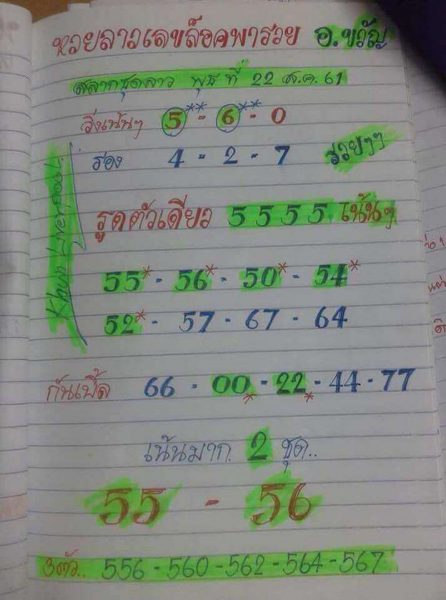 หวยลาวเลขล็อคพารวย อ.ขวัญ
สลากชุดลาว พุธ ที่ 22 ส.ค. 61
วิ่งเน้นๆ 5** - 6** - 0
รอง 4 - 2 - 7 รวยๆๆ
รูดตัวเดียว 5555 เน้นๆ
55* - 56* - 50* - 54*
52* - 57 - 67 - 64
กันเบิ้ล 66 - 00* - 22* - 44 - 77
เน้นมาก 2 ชุด..
55 - 56
3ตัว.. 556 - 560 - 562 - 564 - 567